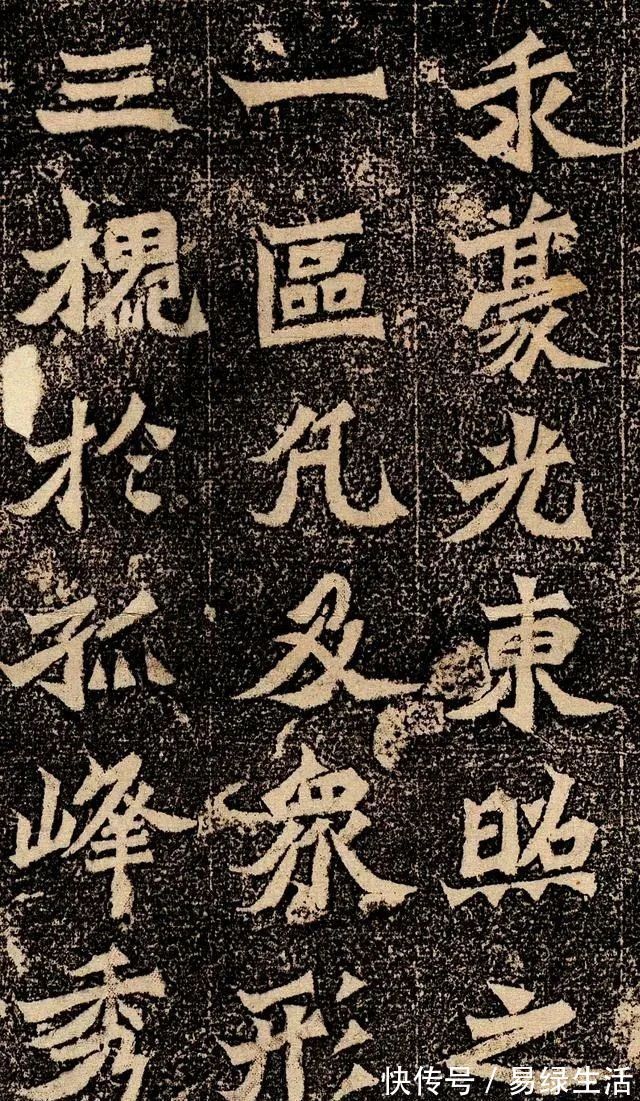 求豪光東照之
一區凡及眾形
三槐於孤峰秀
快传号/易绿生活